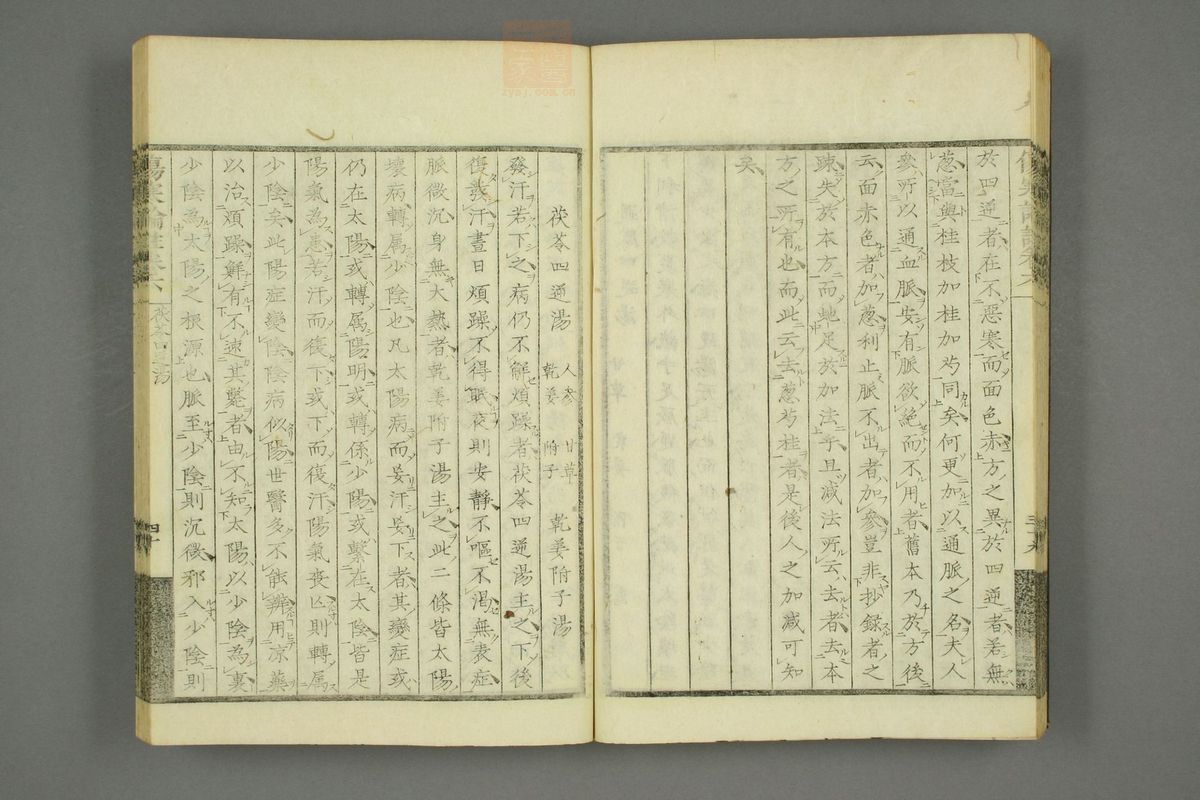 於四逆者在不惡寒而面色赤方之異於四逆者若無
葱當與桂枝加桂加芍同矣何更加以通脈之名夫人
參所以通血脈安有脈欲絕而不用者舊本乃於方後
云面赤色者加葱利止脈不出者加參豈非抄錄者之
疎失於本方而蛇足於加法乎且減法所云去者去本
方之所有也而此云去葱芍桂者是後人之加減可知
矣
茯苓四逆湯 人參 甘草 乾姜 附子 乾姜附子湯
發汗若下之病仍不解煩躁者茯苓四逆湯主之下後
復發汗晝日煩躁不得眠夜則安靜不嘔不渴無表症
脈微沉身無大熱者乾姜附子湯主之此二條皆太陽
壞病轉属少陰也凡太陽病而妄汗妄下者其變症或
仍在太陽或轉属陽明或轉係少陽或繫在太陰皆是
陽氣為患若汗而復下或下而復汗陽氣喪亡則轉属
少陰矣此陽症變陰陰病似陽世醫多不能辨用凉藥
以治煩躁鮮有不速其斃者由不知太陽以少陰為裏
少陰為太陽之根源也脈至少陰則沉微邪入少陰則
傷寒論註卷六
四十